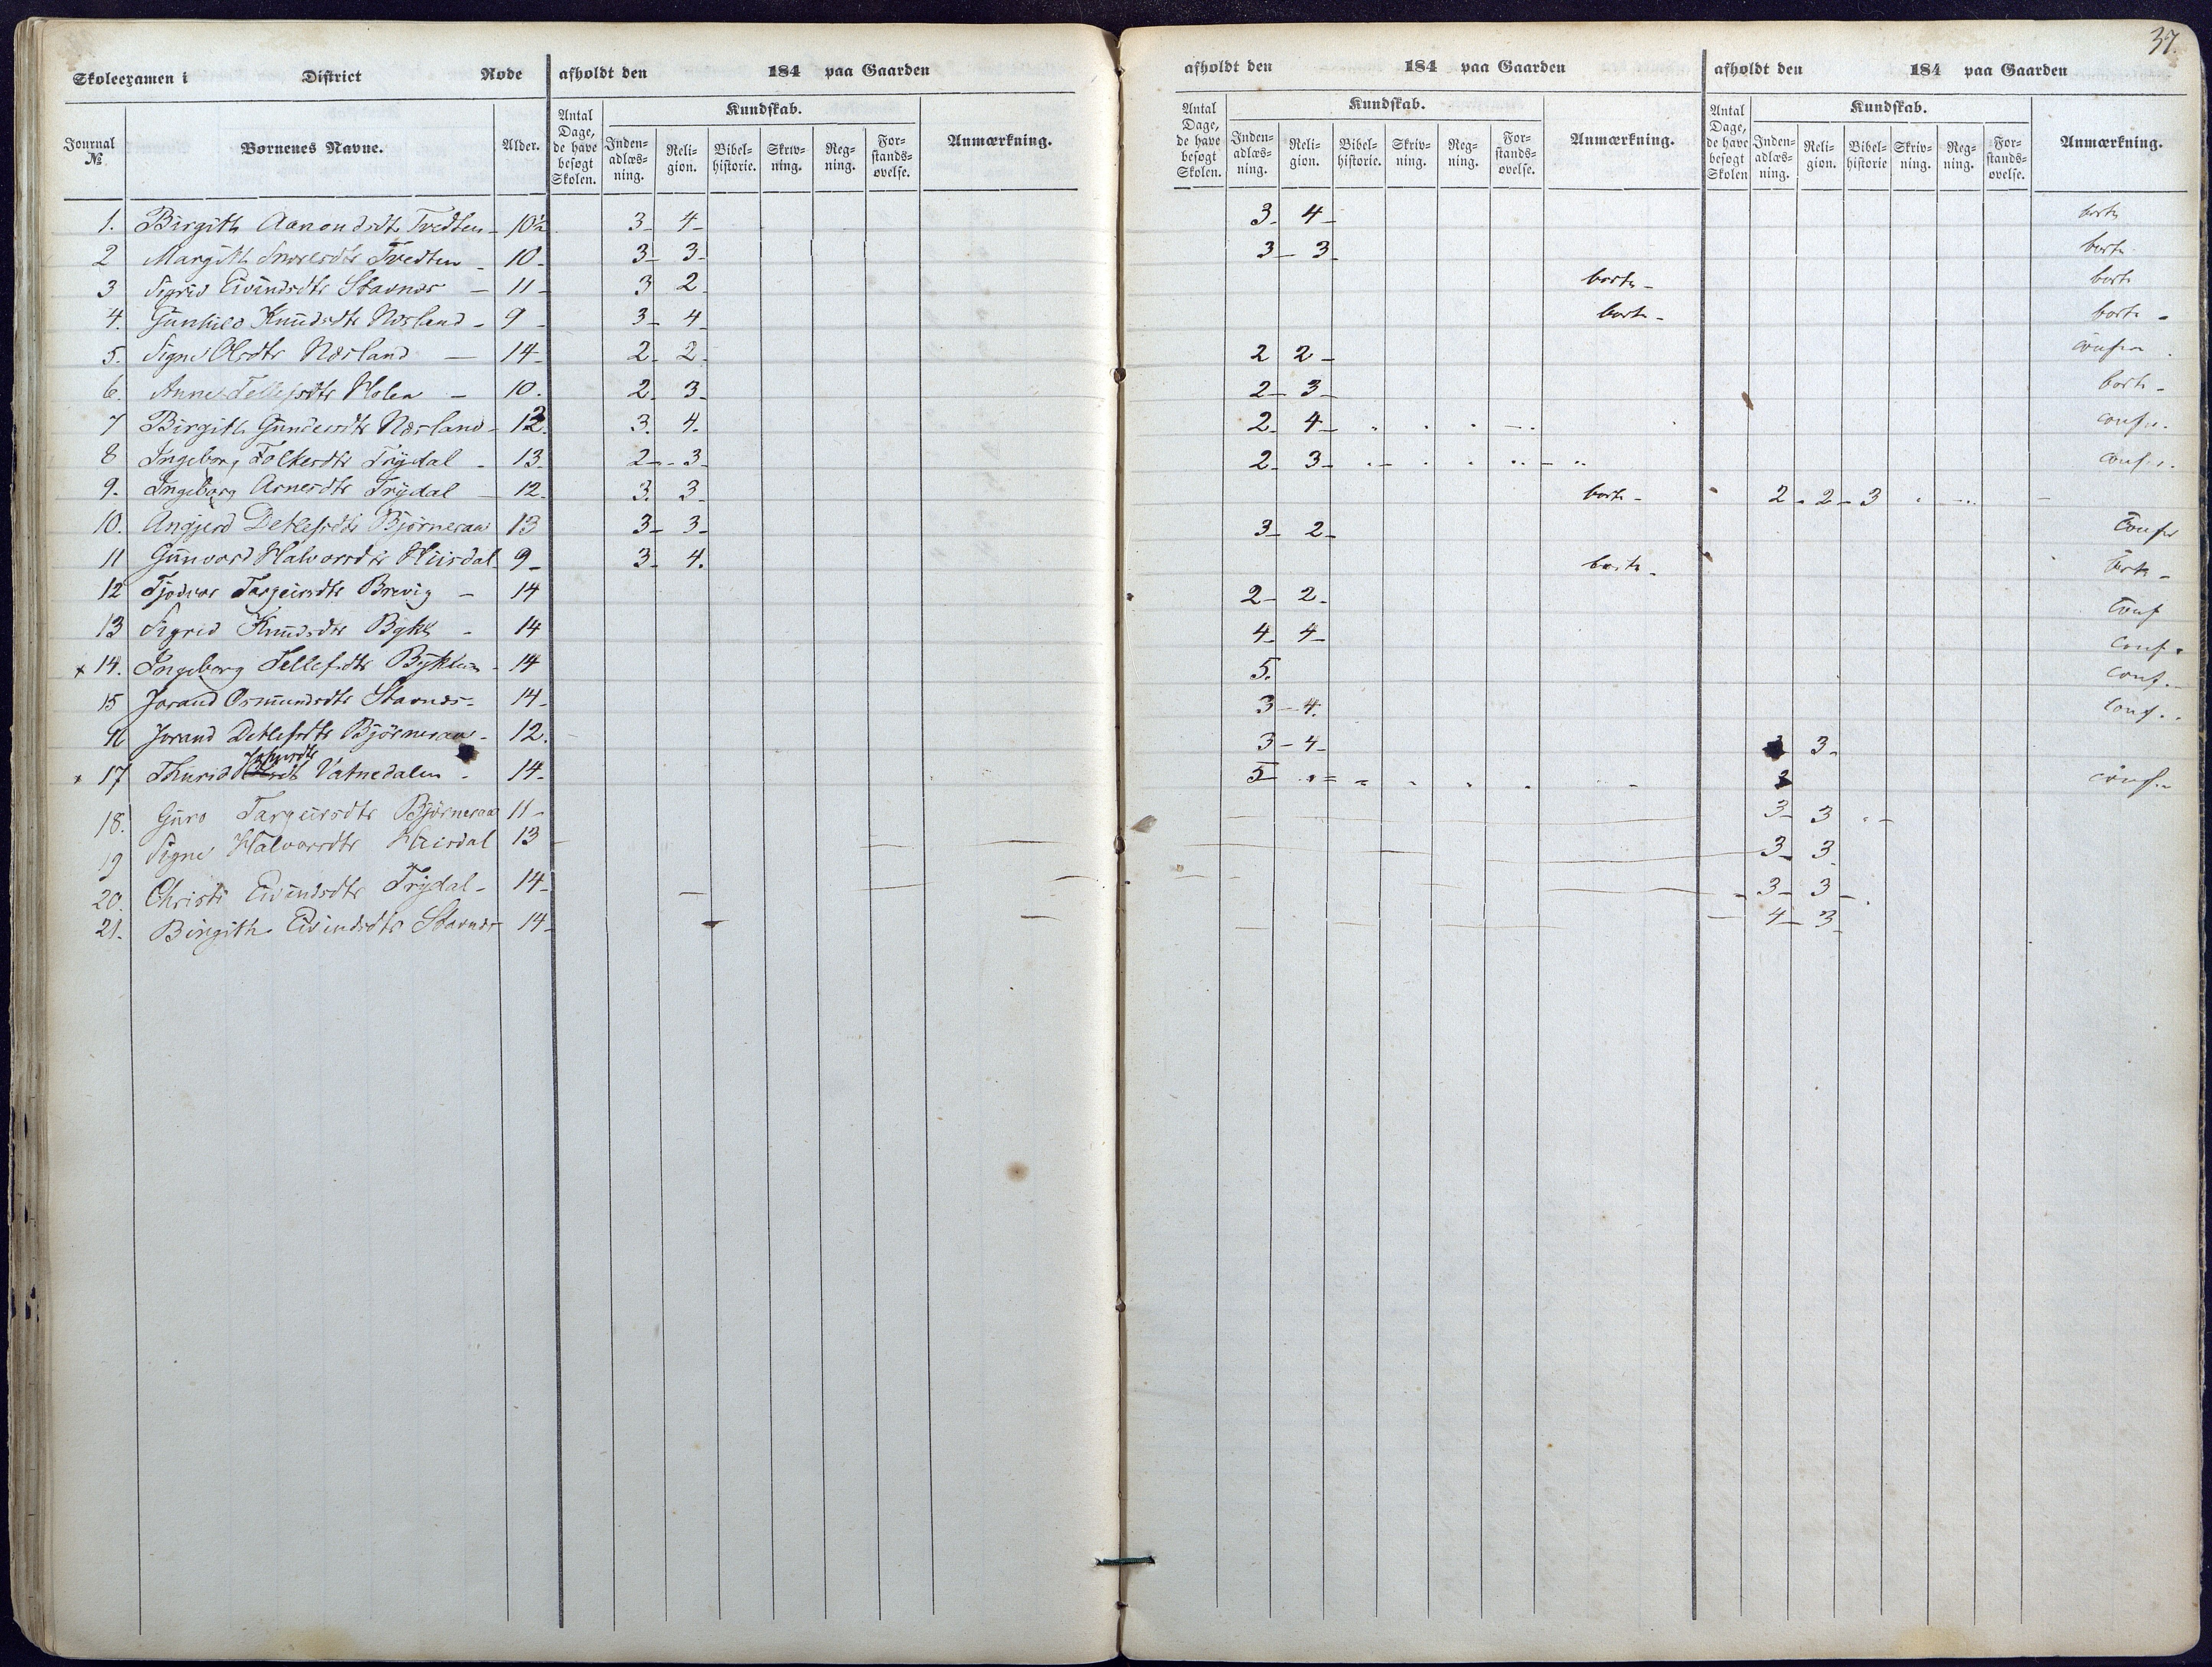 37.
Skoleexamen i District Rode afholdt den 184 paa Gaarden afholdt den 184 paa Gaarden afholdt den 184 paa Gaarden
Journal № Børnenes Navne. Alder. Antal Dage, de have besøgt Skolen. Kundskab. Indenadlæsning. Religion. Bibelhistorie. Skrivning. Regning. Forstandsøvelse. Anmærkning. Antal Dage, de have besøgt Skolen. Kundskab. Indenadlæsning. Religion. Bibelhistorie. Skrivning. Regning. Forstandsøvelse. Anmærkning. Antal Dage, de have besøgt Skolen Kundskab. Indenadlæsning. Religion. Bibelhistorie Skrivning. Regning. Forstandsøvelse. Anmærkning.
1. Birgith Aanondsdtr Tvedten - 10½ 3 - 4 - 3 - 4 - borte
2 Margith Tvedten - 10 - 3 - 3 - 3 - 3 borte
3 Sigrid Eivindsdtr Stavnes - 11 - 3 2 - borte - borte
4. Gunhild Knudsdtr Næsland - 9 - 3 - 4 - borte - borte -
5. Signe Olsdtr Næsland - 14 - 2 - 2 - 2 2 -
6. Anne Tellefsdtr Holen - 10. 2 - 3 - 2 - 3 - borte -
7 Birgith Gundersdtr Næsland - 12. 3. 4. 2 - 4 - confr.
8 Ingeborg Folkesdtr Trydal - 13. 2 - 3 - 2 - 3 - confr.
9. Ingeborg Arnesdtr Trydal - 12. 3. 3 - borte - 2 - 2 - 3
10. Angjerd Detlefsdtr Bjørneraae 13 3 - 3 - 3 - 2 - Confr
11 Gunvord Halvorsdtr Huisdal 9 - 3 - 4. borte - borte -
12 Tjodvor Targeirsdtr Brevig - 14 2 - 2 - Conf
13 Sigrid Knudsdtr Bykle - 14 4 - 4 - Conf.
x 14. Ingeborg Tellefsdtr Byklum - 14 5. Conf.
15 Jorand Osmundsdtr Stavnes - 14 - 3 - 4. Conf.
16 Jorand Detlefsdtr Bjørneraae - 12. 3 - 4 - 3 -
x 17 Thurid Vatnedalen - 14 - 5 conf.
18. Guro Targeirsdtr Bjørneraae 11 - 3 - 3
19 Signe Halvorsdtr Huisdal 13 3 - 3
20. Christi Eivindsdtr Trydal - 14 - 3 - 3 -
21. Birgith Eivindsdtr Stavnes 14 - 4 - 3 -